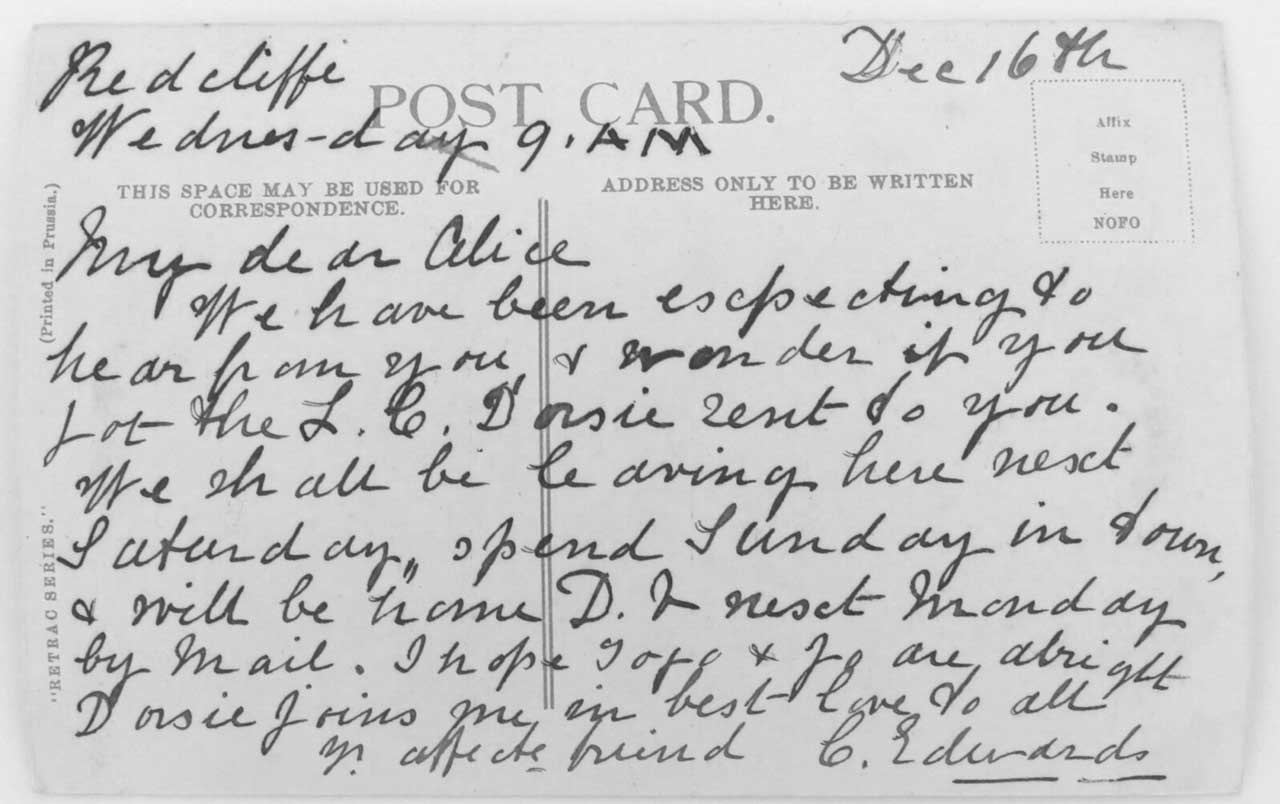 Redcliffe
Dec 16th
POST CARD.
Wednes-day 9. AM
Affix
Stamp
Here
NOFO
THIS SPACE MAY BE USED FOR
CORRESPONDENCE.
ADDRESS ONLY TO BE WRITTEN
HERE.
(Printed in Prussia.)
"RETRAC SERIES."
My dear Alice
We have been expecting to
hear from you & wonder if you
got the L. C. Dorsie sent to you.
We shall be leaving here next
Saturday,, spend Sunday in town,
& will be home D. V next Monday
by Mail. I hope & Jo are alright
Dorsie joins me in best love to all
yr. affecte friend C. Edwards